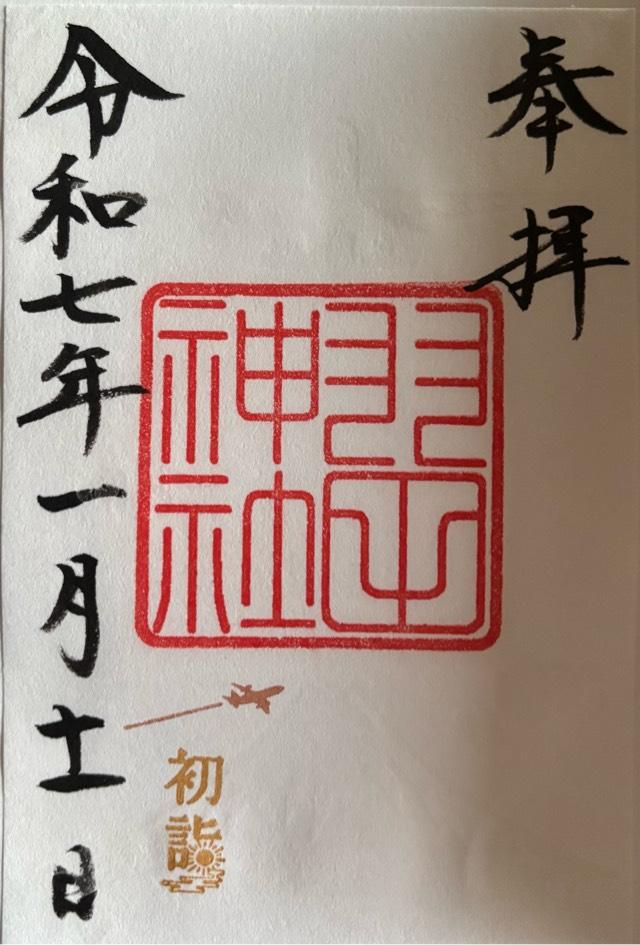 奉拝
羽田
神社
初詣
令和七年一月十一日